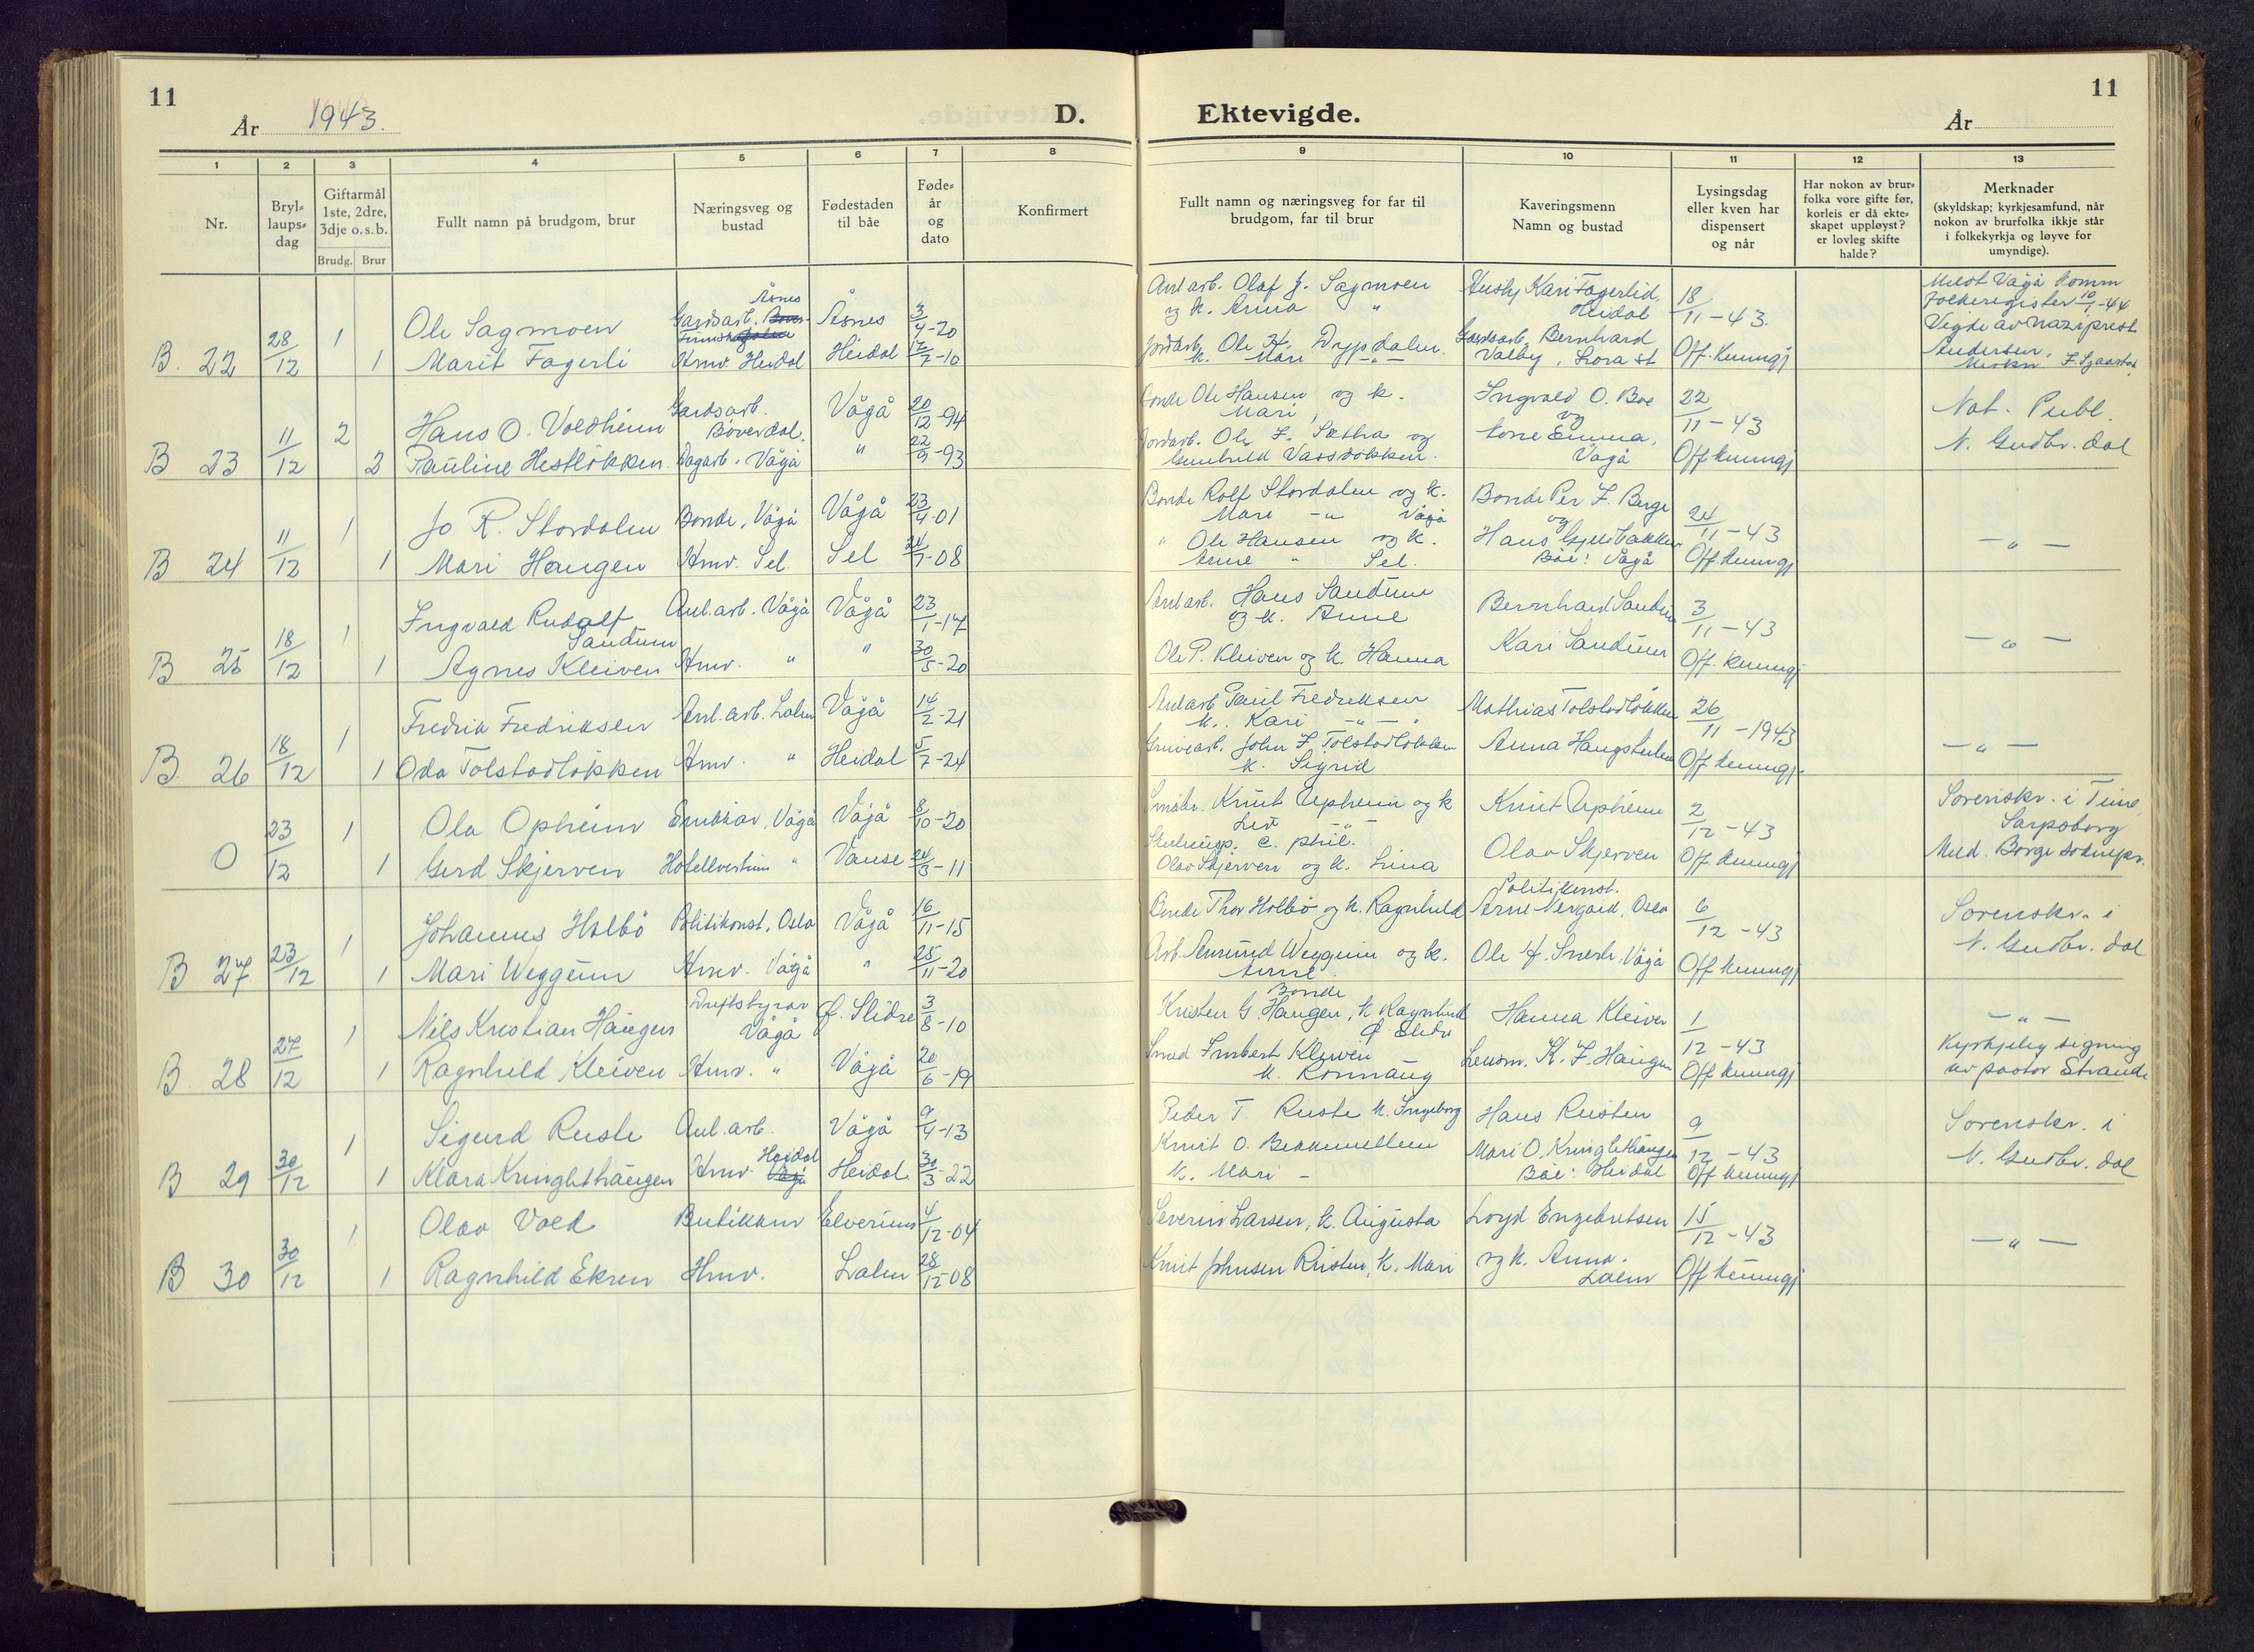 11
År 1943.
D.
1 2 3 4 5 6 7 8
Nr.
Bryl-
laups-
dag
Giftarmål
1ste, 2dre,
3dje o.s.b.
Brudg. Brur
Fullt namn på brudgom, brur
Næringsveg og
bustad
Fødestaden
til båe
Føde-
år
og
dato
Konfirmert
Åsnes
28/12 1 Ole Sagmoen Gardsarb. Åsnes 3/4-20
B. 22 1 Marit Fagerli Hmv. Heidal Heidal 12/7-10
11/12 2 Hans O. Voldheim Gardsarb. Vågå 20/12-94
Bøverdal.
B 23 2 Pauline Hestløkken Dagarb. Vågå " 22/9-93
11/12 1 Jo R. Stordalen Bonde, Vågå Vågå 23/4-01
B 24 1 Mari Haugen Hmv. Sel. Sel 24/7-08
18/12 1 Ingvald Rudolf Anl.arb. Vågå Vågå 23/1-17
Sandum
B 25 1 Agnes Kleiven Hmv. " " 30/5-20
18/12 1 Fredrik Fredriksen Anl.arb. Lalm Vågå 14/2-21
B. 26 1 Oda Tolstadløkken Hmv. " Heidal 5/7-24
23/12 1 Ola Opheim Vågå Vågå 8/10-20
O 1 Gerd Skjerven Hotellvertinne " Vanse 24/3-11
23/12 1 Johannes Holbø Politikonst, Oslo Vågå 16/11-15
B 27 1 Mari Weggum Hmv. Vågå " 25/11-20
27/12 1 Nils Kristian Haugen Driftstyrar Ø. Slidre 3/8-10
Vågå
B. 28 1 Ragnhild Kleiven Hmv. " Vågå 20/6-19
30/12 1 Sigurd Ruste Anl.arb. Vågå 9/4-13
Heidal
B 29 1 Klara Kringlethaugen Hmv. Vågå Heidal 30/3-22
30/12 1 Olav Vold Butikkmv Elverum 4/12-04
B 30 1 Ragnhild Ekren Hmv. Lalm 28/12-08
Ektevigde.
11
År
9 10 11 12 13
Fullt namn og næringsveg for far til
brudgom, far til brur
Kaveringsmenn
Namn og bustad
Lysingsdag
eller kven har
dispensert
og når
Har nokon av brur-
folka vore gifte før,
korleis er då ekte-
skapet uppløyst?
er lovleg skifte
halde?
Merknader
(skyldskap; kyrkjesamfund, når
nokon av brurfolka ikkje står
i folkekyrkja og løyve for
umyndige).
Anl arb. Olaf J. Sagmoen Kari Fagerlid 18/11-43. Meldt Vågå komm
og k. Anna " Heidal folkeregister 10/1-44
Jordarb. Ole H. Drypdalen. Gardsarb. Bernhard Off. kunngj Vigde av naziprest
k. Mari -"- Valby, Lora st Andersen.
Bonde Ole Hansen og k. Ingvald O. Boe 22/11-43 Not. Publ.
Mari og
Jordarb. Ole J. Sethra og kone Emma, Off kunngj N. Gudbr. dal
Gunhild Vassdokken. Vågå
Bonde Rolf Stordalen og k. Bonde Per J. Berge 24/11-43
Mari -"- Vågå og
" Ole Hansen og k. Hans Gjeldbakken Off. kunngj -"-
Anne " Sel. Båe: Vågå
Anl arb. Hans Sandum Bernhard Sandum 3/11-43
og k. Anne
Ole P. Kleiven og k. Hanna Kari Sandum Off. kunngj -"-
Anl arb Paul Fredriksen Mathias Tolstadløkken 26/11-1943
k. Kari -"-
Gruvearb. John J. Tolstadløkken Anna Haugstulen Off kunngj. -"-
k. Sigrid
Småbr. Knut Upheim og k Knut Upheim 2/12-43 Sorenskr. i Tune
Liv -"- Sarpsborg
c. phil.
Olav Skjerven og k. Lina Olav Skjerven Off. kunngj Meld. Borge soknepr.
Politikonst.
Bonde Thor Holbø og k. Ragnhild Arne Nergård, Oslo 6/12-43 Sorenskr. i
Arb. Amund Weggum og k. Ole H. Snerle, Vågå Off kunngj N. Gudbr. dal
Anne.
Bonde
Kristen G. Haugen, k Ragnhild Hanna Kleiven 1/12-43 -"-
Ø. Slidre
Smed Imbert Kleiven Lensm. K. J. Haugen Off kunngj Kyrkjeleg signing
k. Rønnaug av pastor Strande
Peder T. Ruste k. Ingeborg Hans Rusten 9/12-43 Sorenskr. i
Knut O. Bekkemellem Mari O. Kringlethaugen N. Gudbr. dal
k. Mari - Båe: Heidal Off kunngj
Severin Larsen, k. Augusta Loyd Engebretsen 15/12-43
Knut Johnsen Rusten, k. Mari og k. Anna. Off kunngj -"-
Lalm